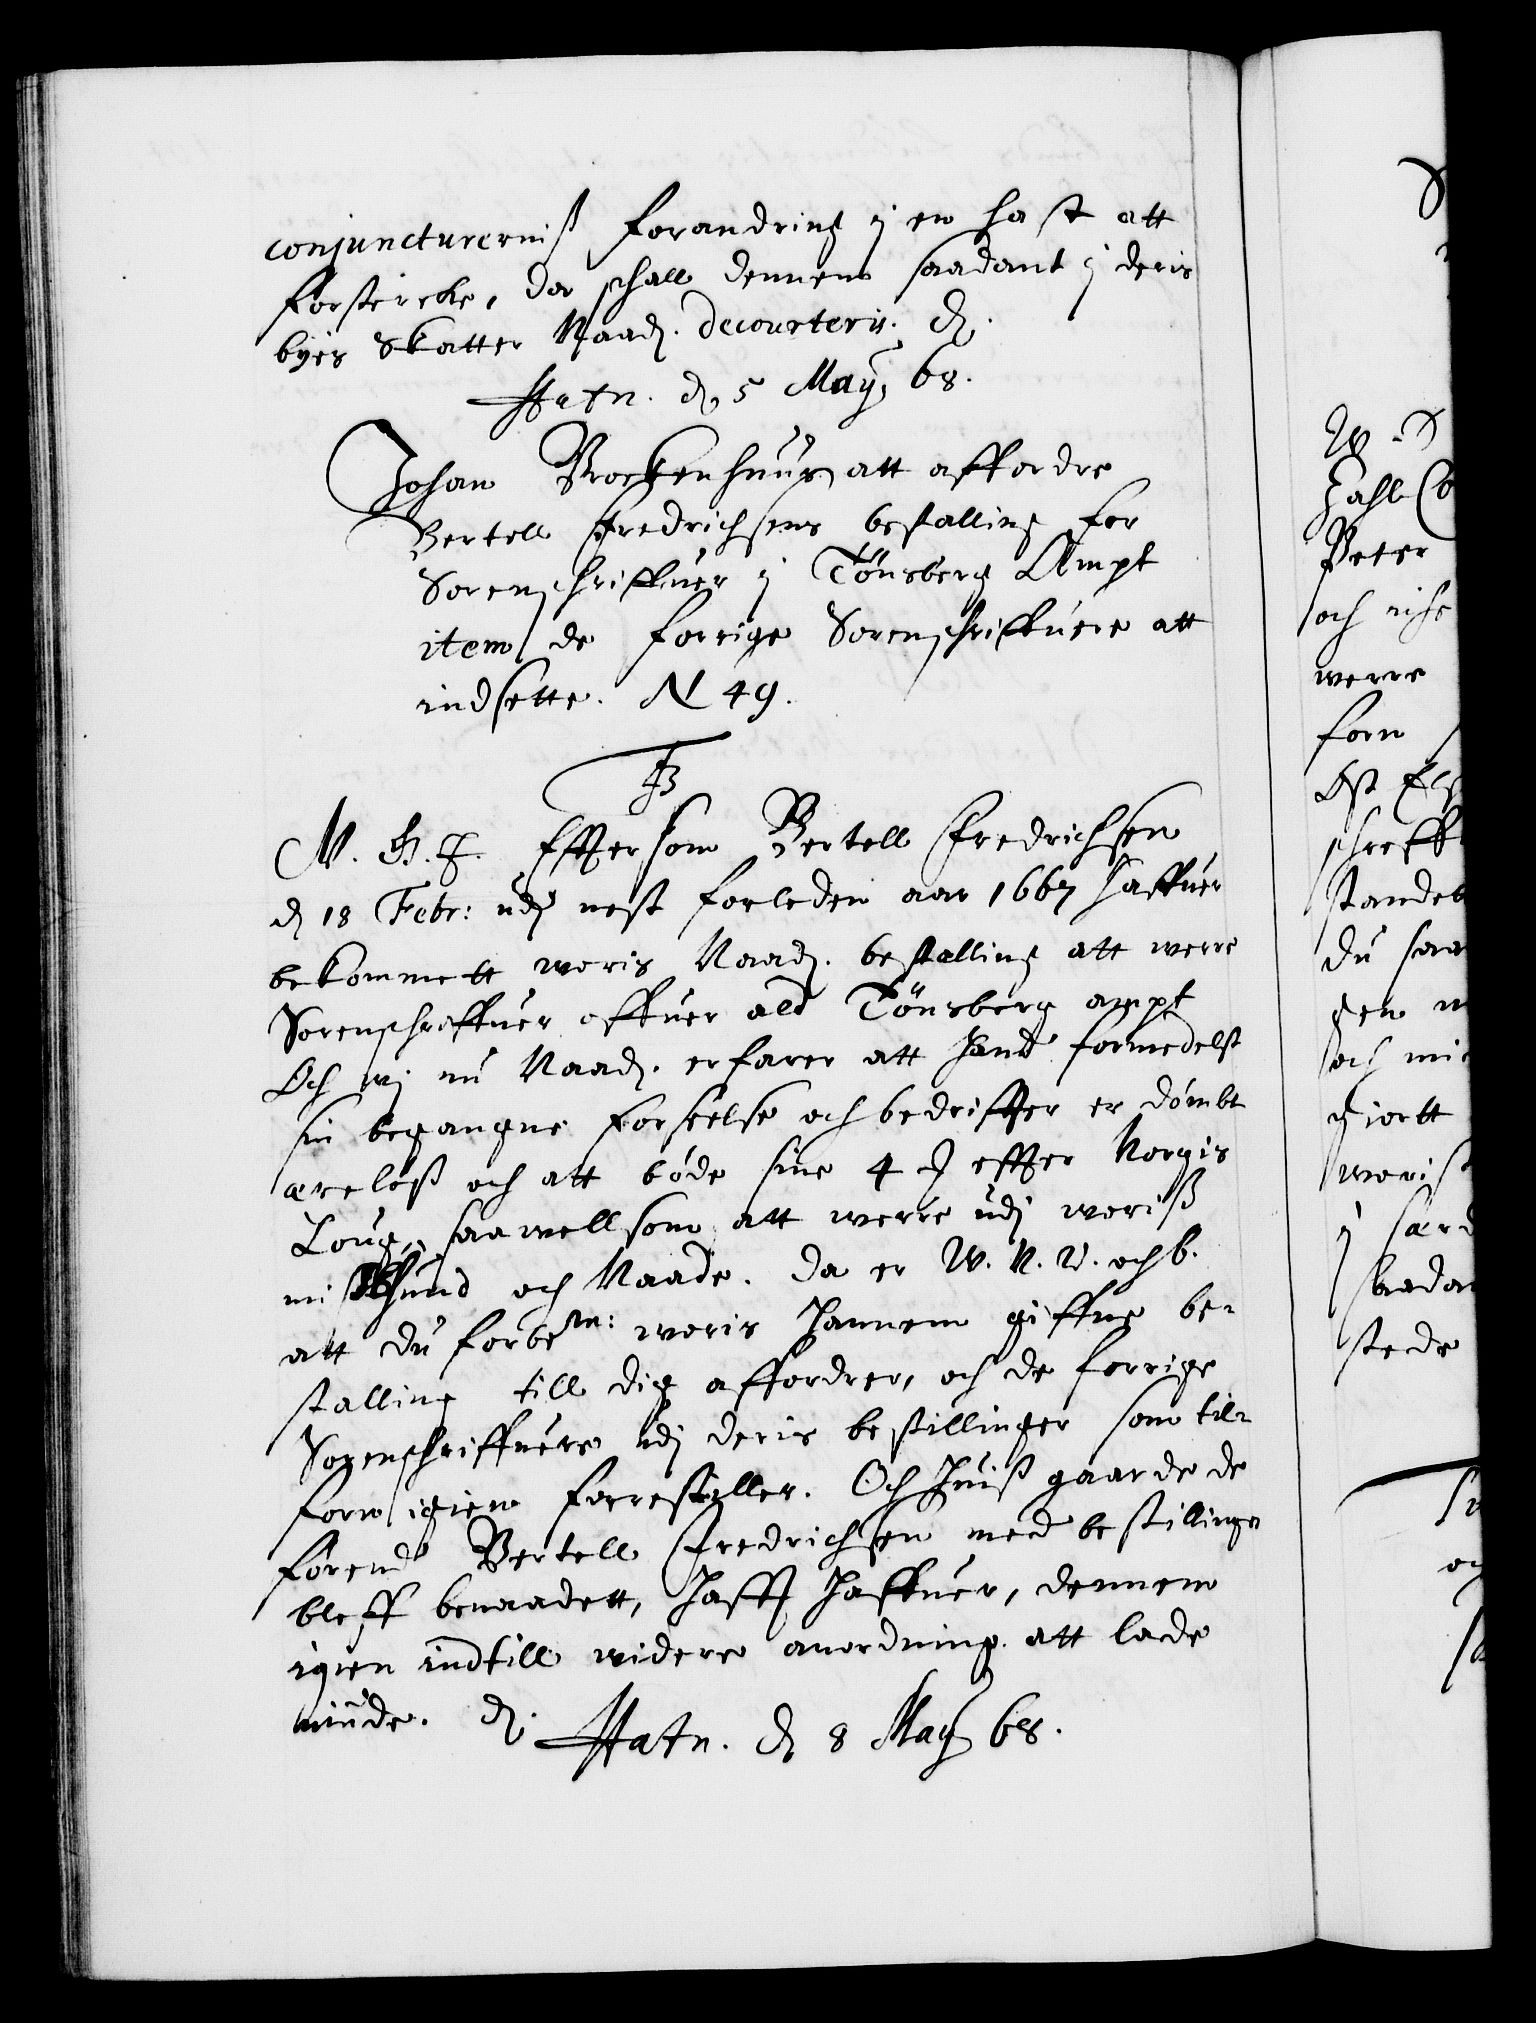 conjuncturerniß forandring i en hast att
forstercke, da schall dennem saadant i deris
byes Skatter Naad. decourteris. D.
Hafn. d. 5 May 68.
Johan Brockenhuus att affordre
Bertell Fredrichsens bestalling for
Sorenschriffuer i Tönsberg Ampt
item de forrige Sorenschriffuere att
indsette. N 49.
F3
M. G. T. Effterson Bertell Fredrichsen
d 18 Febr: udj nest forleden aar 1667 haffuer
bekommett woris Naad. bestalling att werre
Sorenschriffuer offuer ald Tönsberg ampt
Och wj nu Naad. erfarer att hand formedelst
sin begangne forseelse och bedriffter er dömbt
æreløß och att bøde sine 4 effter Norgis
Loug, saawellsom att werre udj woriß
miskund och Naade. da er W. N. V. och b.
att du forbete: woris hannem giffne be-
stalling till dig affordrer, och de forrige
Sorenschriffuere udj deris bestillinger som til-
forn igien forrestiller. Och huiß gaarde de
førend Bertell Fredrichsen med bestillingen
bleff benaadett, hafft haffuer, dennem
igien indtill widere anordning att lade
niude. D.
Hafn. d 8 May 68.
W
Zahl Co
Peter
och
werre
forn
Øst
schreff
standeb
du saa
gen
och
giortt
woris
i særd
saadan
stede